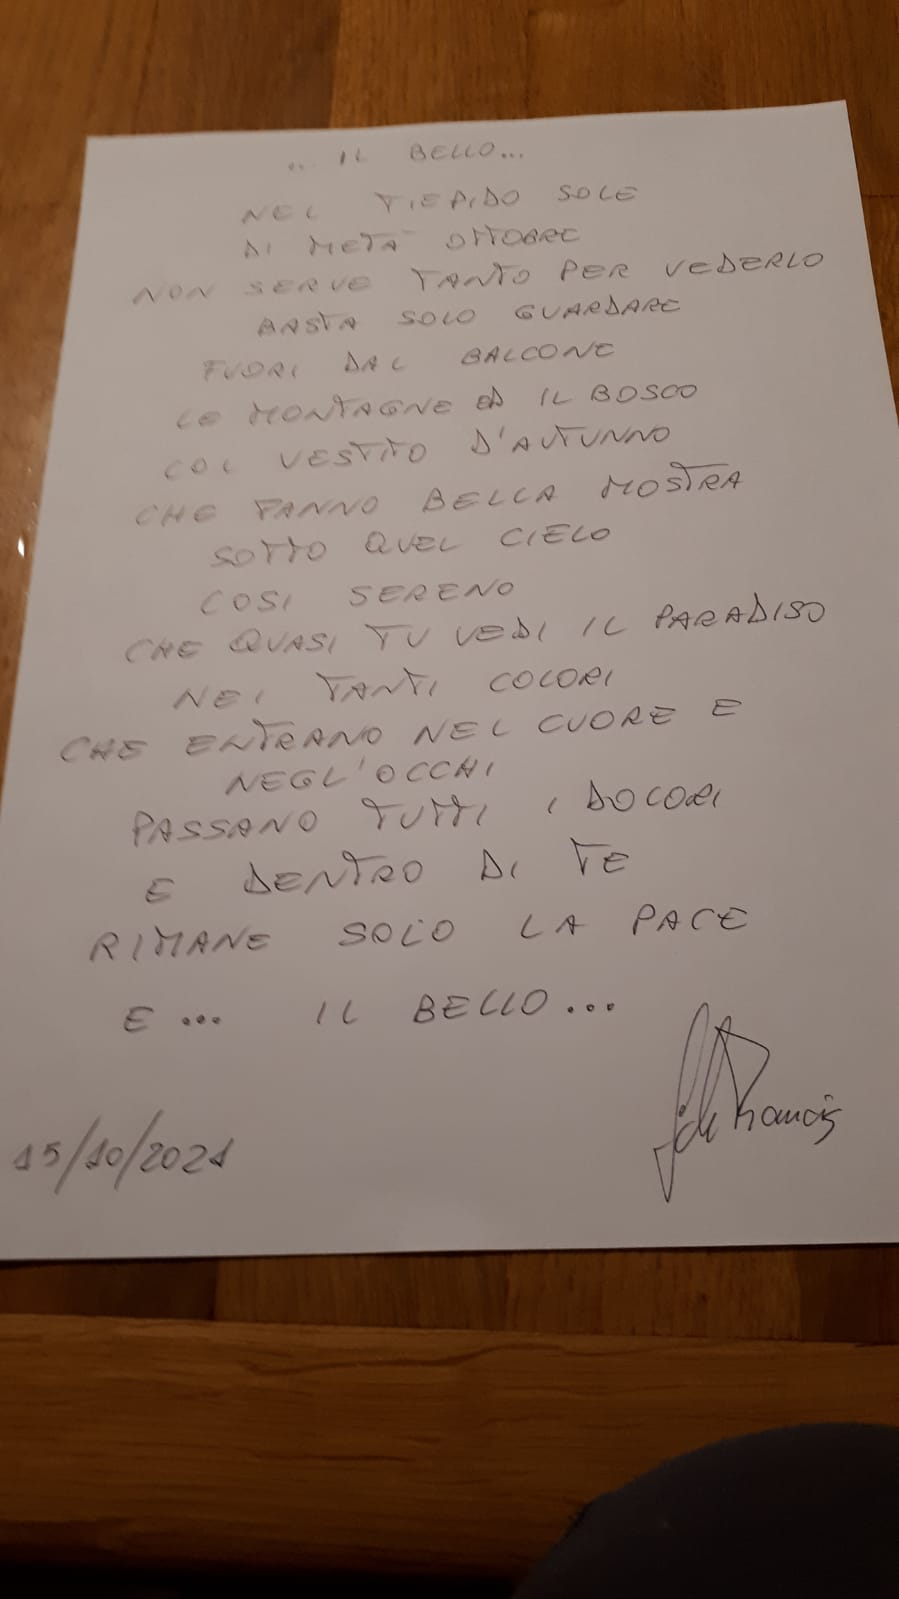 ... IL BELLO...
NEL TIEPIDO SOLE
DI METÀ OTTOBRE
NON SERVE TANTO PER VEDERLO
BASTA SOLO GUARDARE
FUORI DAL BALCONE
LE MONTAGNE ED IL BOSCO
COL VESTITO D'AUTUNNO
CHE FANNO BELLA MOSTRA
SOTTO QUEL CIELO
COSI SERENO
CHE QUASI TU VEDI IL PARADISO
NEI TANTI COLORI
CHE ENTRANO NEL CUORE E
NEGL'OCCHI
PASSANO TUTTI I DOLORI
E DENTRO DI TE
RIMANE SOLO LA PACE
E... IL BELLO...
15/10/2021